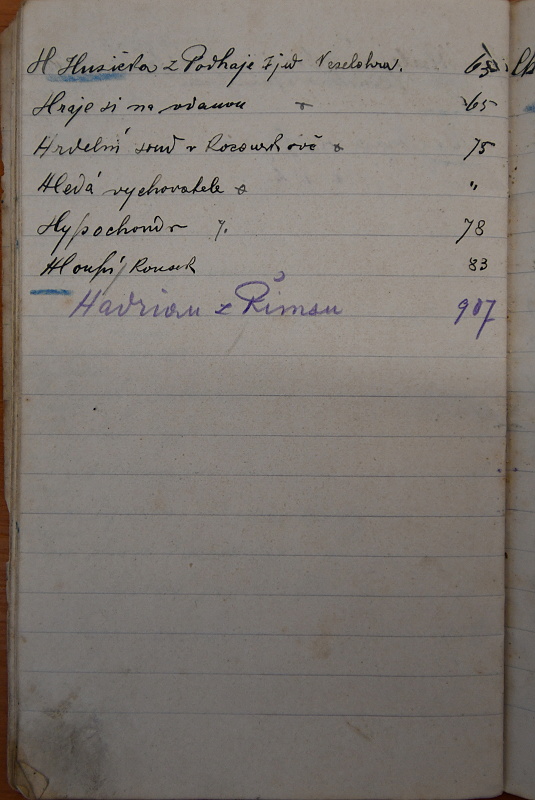 H Husička z Podháje 7 jed Veselohra. 63
Hraje si na vdanou 65
Hrdelní soud v 75
Hledá vychovatele "
Hypochondr 7. 78
Hloupý Kousek 83
Hadrian z Římsu 907